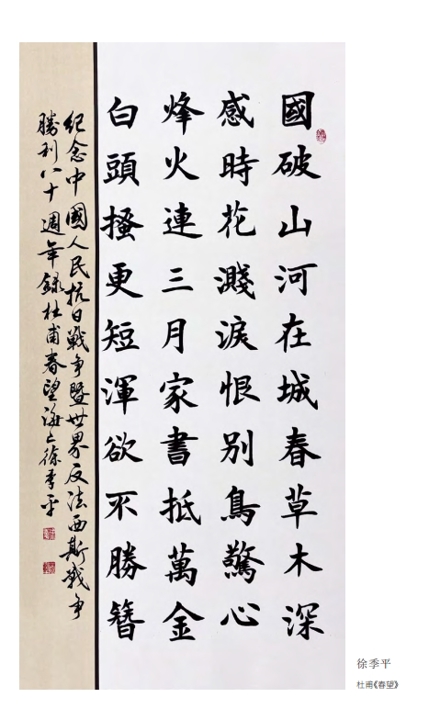 國破山河在城春草木深
感時花濺淚恨別鳥驚心
烽火連三月家書抵萬金
白頭搔更短渾欲不勝簪
紀念中國人民抗日戰爭暨世界反法西斯戰爭
勝利八十週年錄杜甫春望海上徐季平
徐季平
杜甫《春望》